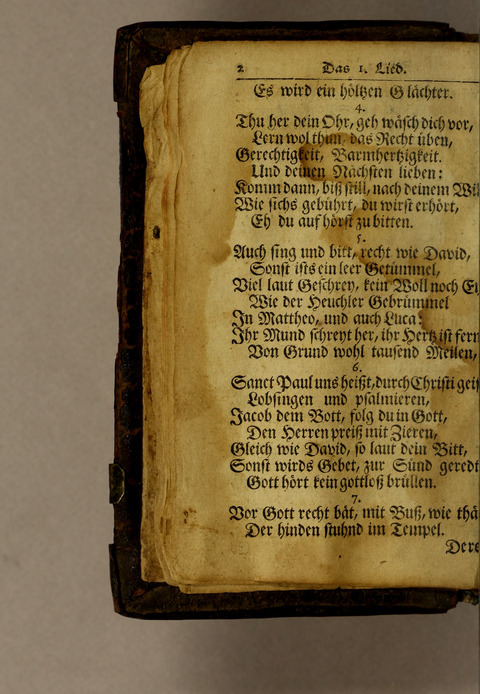 2 Das 1. Lied.
Es wird ein höltzen Glächter.
4.
Thu her dein Ohr, geh wäsch dich vor,
Lern wol thun, das Recht üben,
Gerechtigkeit, Barmhertzigkeit.
Und deinen Nächsten lieben:
Komm dann, biß still, nach deinem Wil
Wie sichs gebührt, du wirst erhört,
Eh du auf hörst zu bitten.
5.
Auch sing und bitt, recht wie David,
Sonst ists ein leer Getümmel,
Viel laut Geschrey, kein Woll noch Ey
Wie der Heuchler Gebrümmel
In Mattheo, und auch Luca:
Ihr Mund schreyt her, ihr Hertz ist fern
Von Grund wohl tausend Meilen,
6.
Sanct Paul uns heißt, durch Christi geis
Lobsingen und psalmieren,
Jacob dem Bott, folg du in Gott,
Den Herren preiß mit Zieren,
Gleich wie David, so laut dein Bitt,
Sonst wirds Gebet, zur Sünd geredt
Gott hört kein gottloß brüllen.
7.
Vor Gott recht bät, mit Buß, wie thä
Der hinden stuhnd im Tempel.
Dere